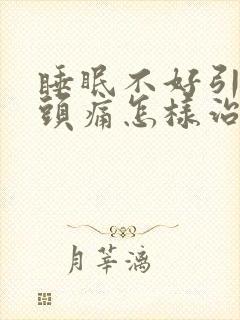 睡眠不好引
頭痛怎樣治
月莘漓